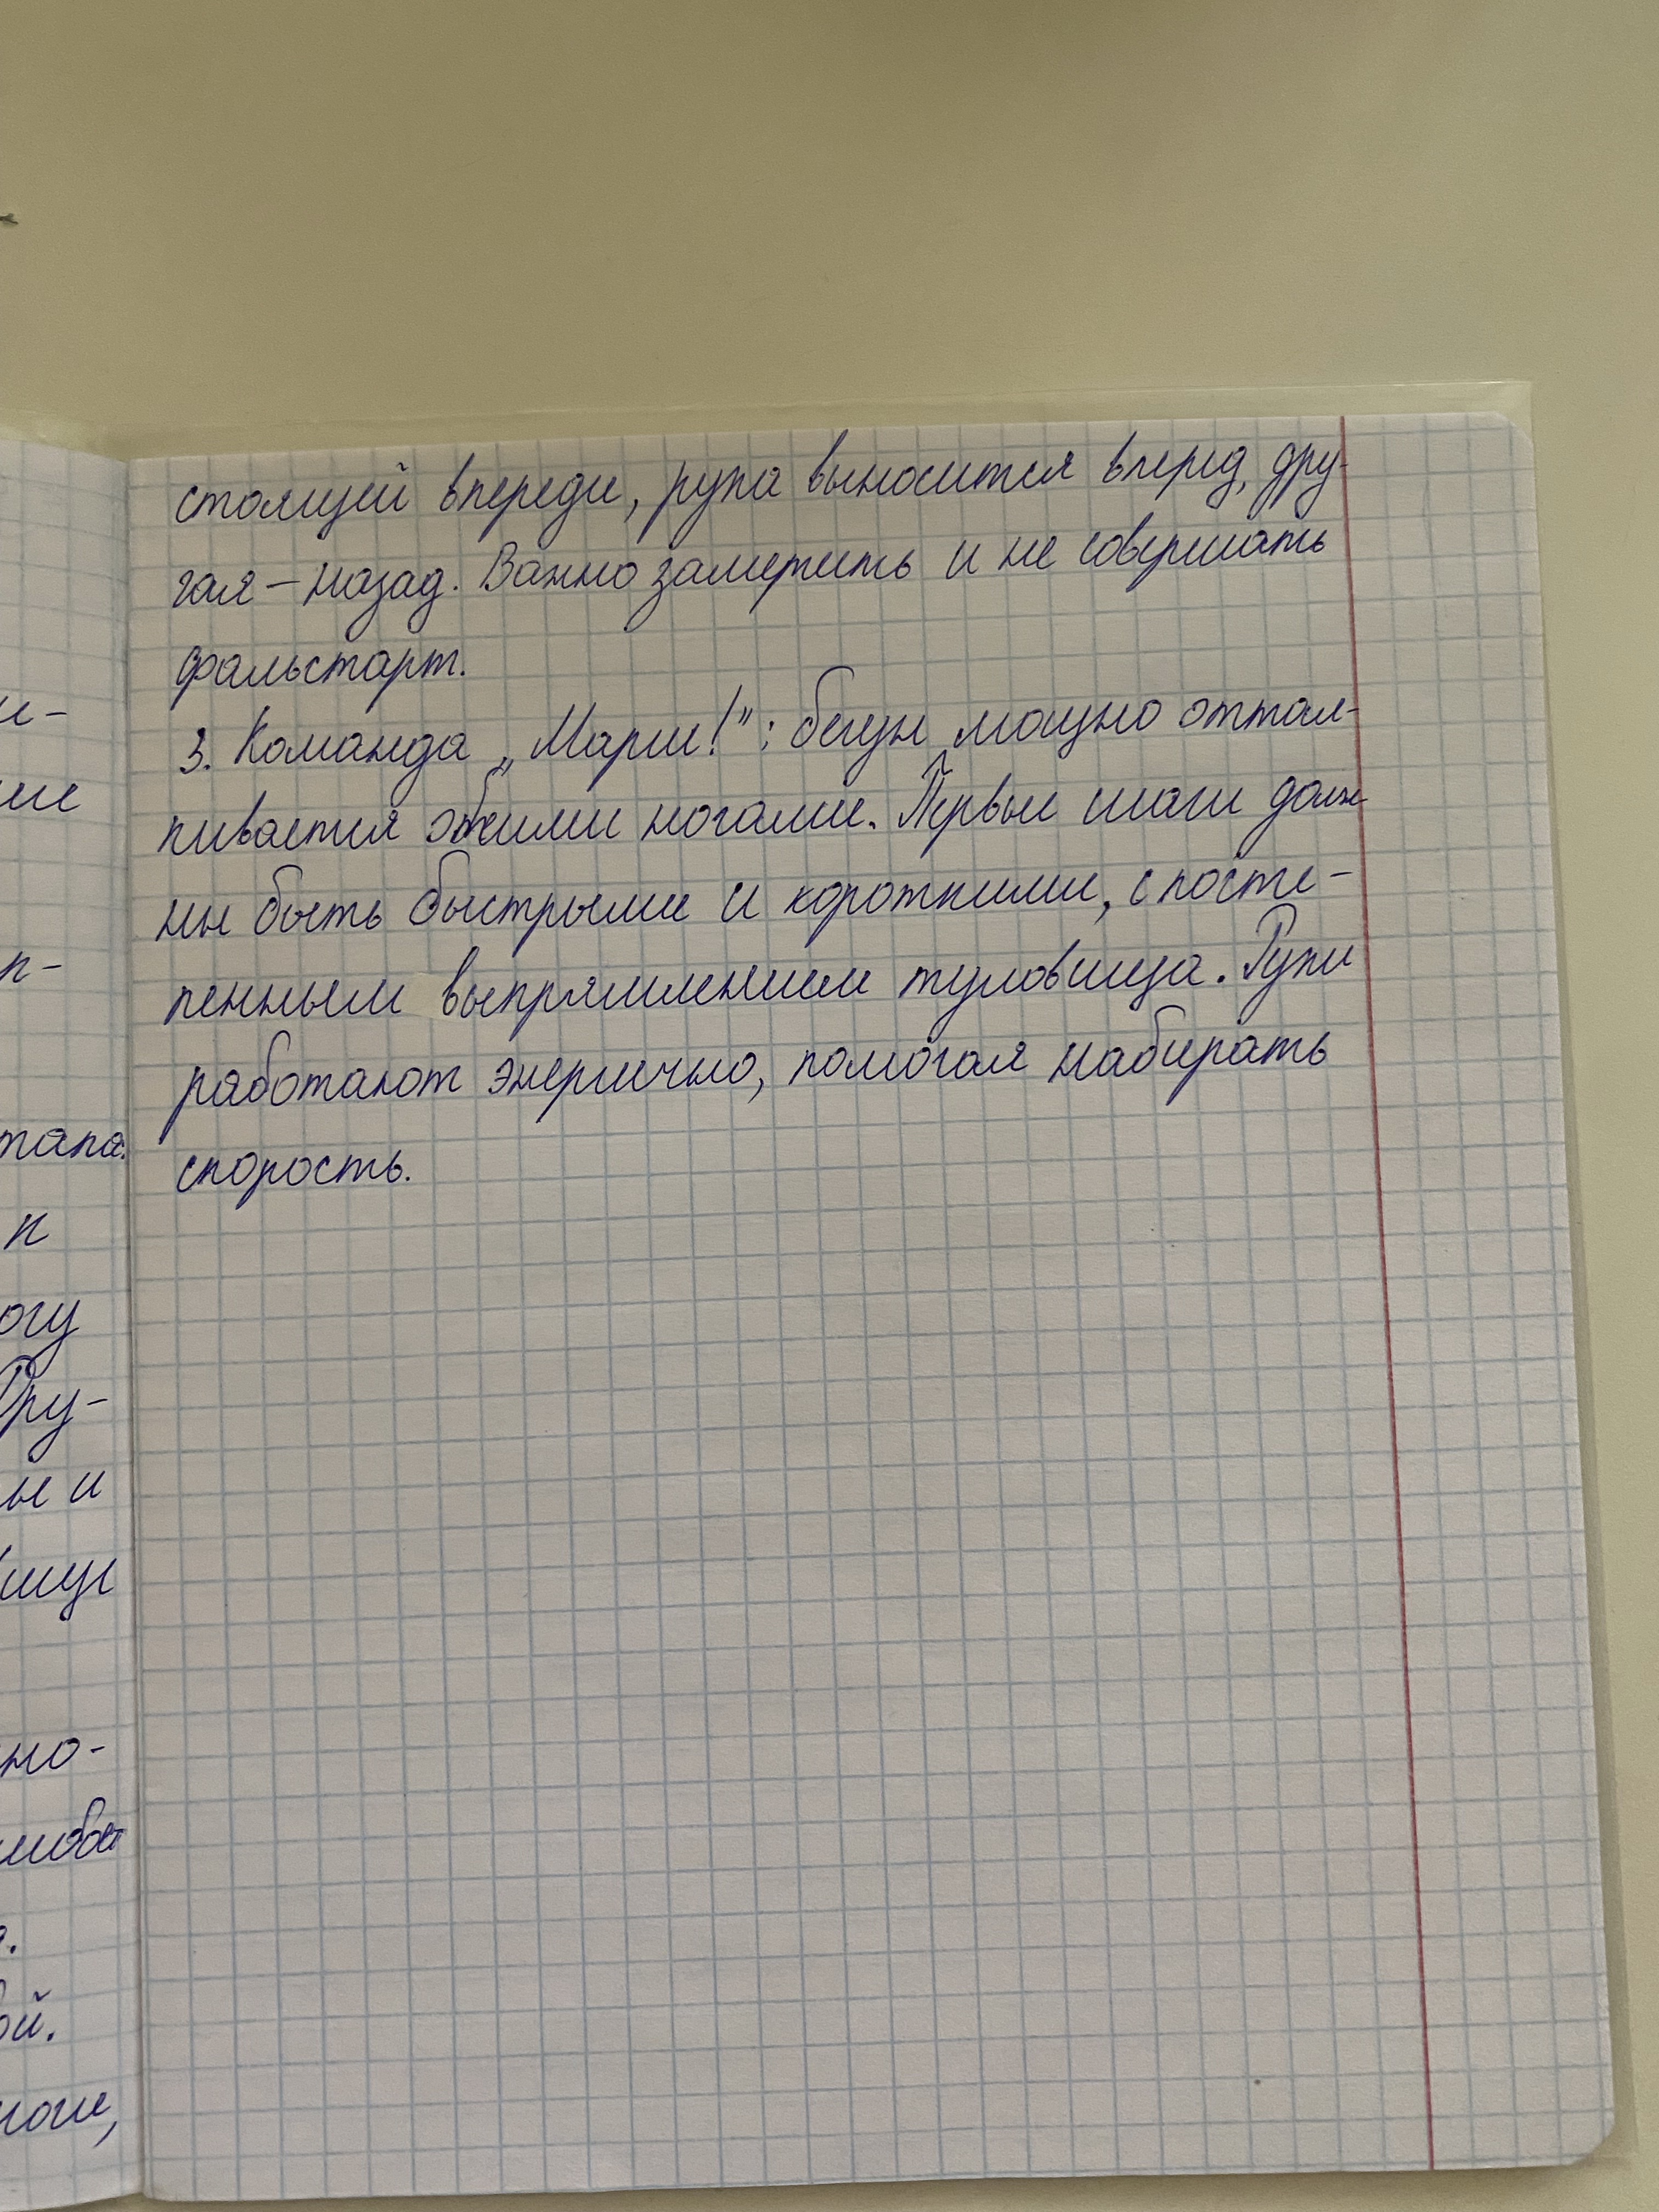 стоящей впереди, рука выносится вперед, дру-
гая – назад. Важно замереть и не совершать
фальстарт.
3. Команда „Марш!”: бегун мощно оттал-
кивается обеими ногами. Первые шаги долж-
ны быть быстрыми и короткими, с посте-
пенным выпрямлением туловища. Руки
работают энергично, помогая набирать
скорость.